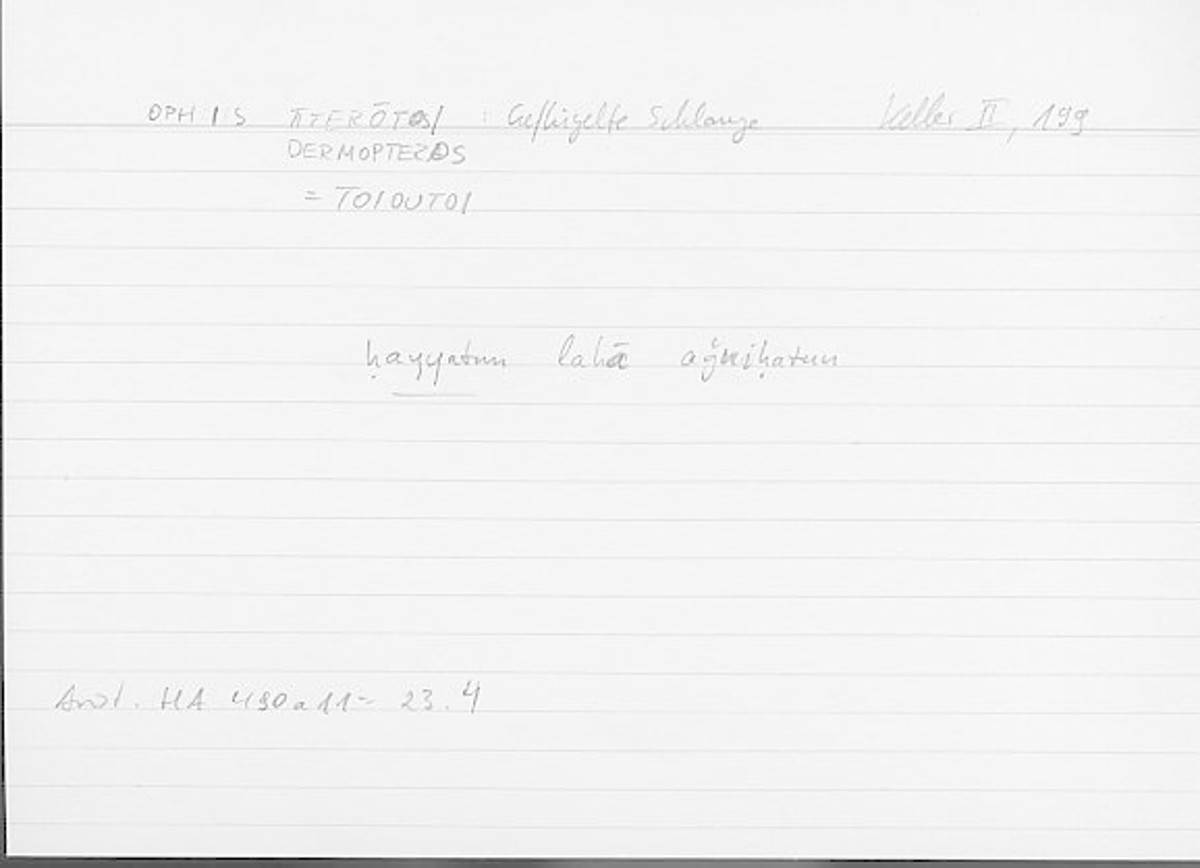 OPHIS PTERŌTOS/ : Geflügelte Schlange Keller II, 199
DERMOPTEROS
= TOIOUTOI
ḥayyatun lahā aǧniḥatun
Arist. HA 490a11 = 23.4